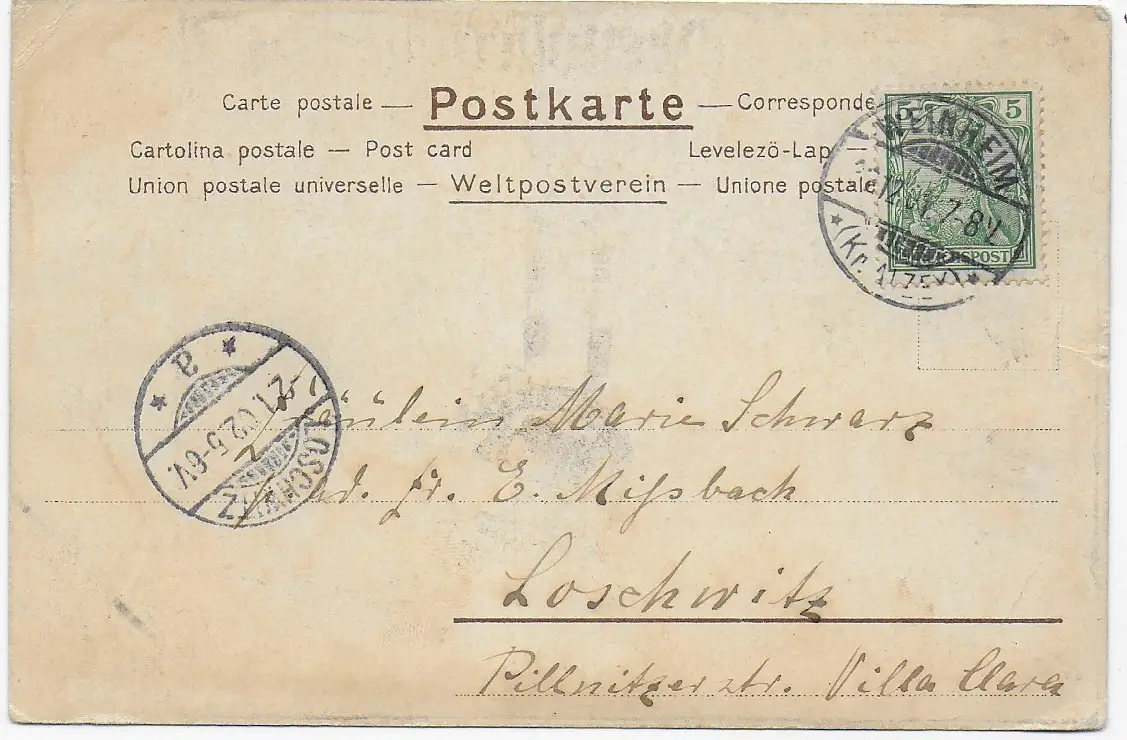 Carte postale — Postkarte — Corresponde
Cartolina postale — Post card Levelező-Lap —
Union postale universelle — Weltpostverein — Unione postale
5 5
WEINHEIM
12.01. 7-8V.
* (Kr. ALZEY) *
REICHSPOST
* a *
2.1.02. 5-6V.
LOSCHWITZ
Fräulein Marie Schwarz
ad. fr. E. Mißbach
Loschwitz
Pillnitzerstr. Villa Clara